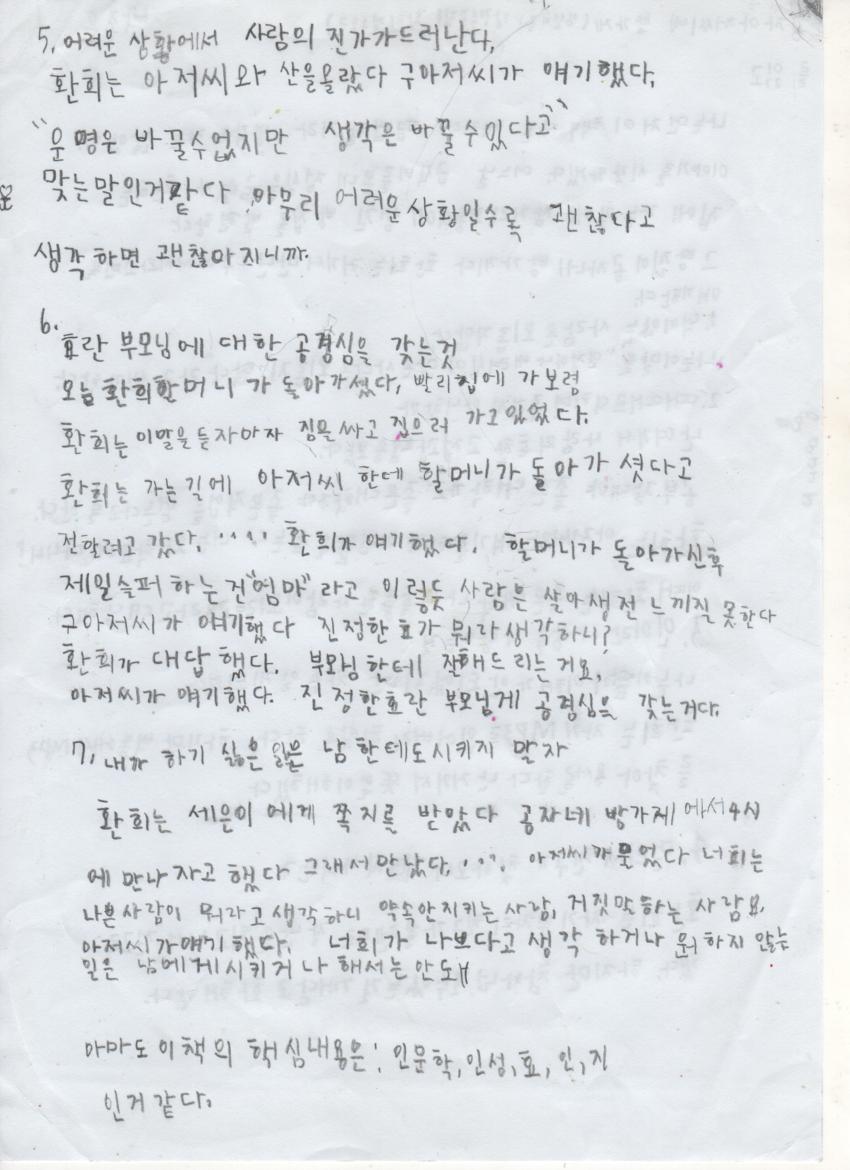 5, 어려운 상황에서 사람의 진가가드러난다,
환희는 아저씨와 산을올랐다 구아저씨가 얘기했다,
"운명은 바꿀수없지만 생각은 바꿀수있다고"
맞는말인거같다. 아무리 어려운상황일수록 괜찮다고
생각하면 괜찮아지니까.
6.
효란 부모님에 대한 공경심을 갖는것
오늘 환희할머니가 돌아가셨다, 빨리집에 가보렴
환희는 이말을듣자마자 짐을싸고 집으러 가고있었다.
환희는 가는길에 아저씨한데 할머니가 돌아가셧다고
전할려고 갔다. ···· 환희가 얘기했다. 할머니가 돌아가신후
제일슬퍼하는건"엄마"라고 이렇듯 사람은 살아생전 느끼질 못한다
구아저씨가 얘기했다 진정한효가 뭐라생각하니?
환희가 대답했다. 부모님한테 잘해드리는거요,
아저씨가 얘기했다. 진정한효란 부모님게 공경심을 갖는거다.
7, 내가 하기 싫은 일은 남한테도시키지 말자
환희는 세은이에게 쪽지를 받았다 공자네 방가제에서4시
에 만나자고 했다 그래서만났다, ···, 아저씨가물었다 너희는
나쁜사람이 뭐라고생각하니 약속안지키는사람, 거짓말하는사람요,
아저씨가얘기했다, 너희가 나쁘다고 생각하거나 원하지 않는
일은 남에게시키거나 해서는안도ㅐ
아마도이책의 핵심내용은: 인문학,인성,효,인,지
인거같다.